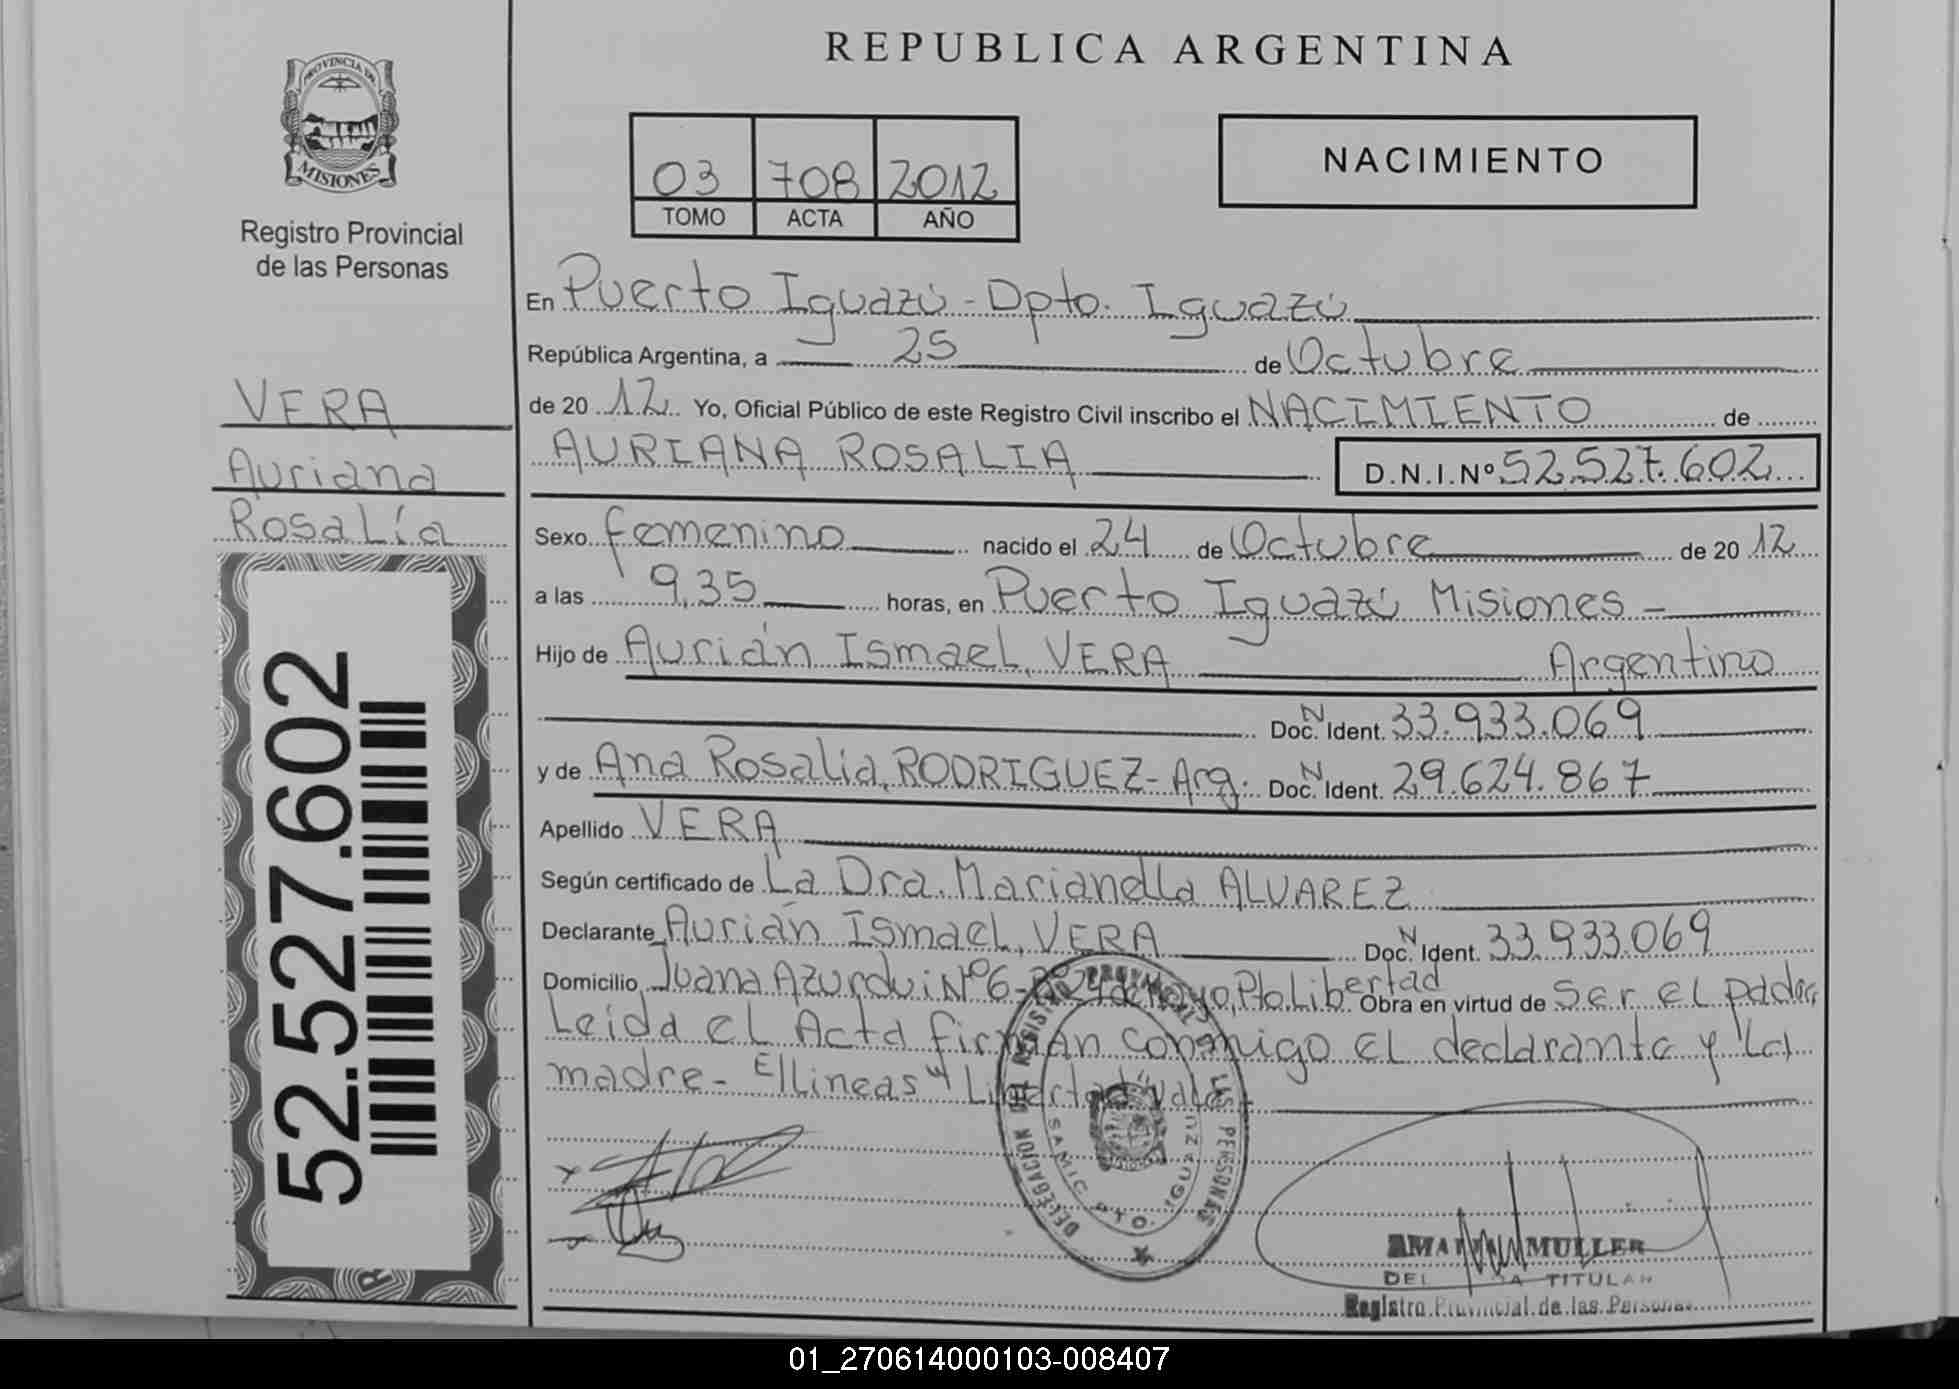 REPUBLICA ARGENTINA
PROVINCIA DE
MISIONES
Registro Provincial
de las Personas
03 708 2012
TOMO ACTA AÑO
NACIMIENTO
VERA
Auriana
Rosalía
52.527.602
En Puerto Iguazú - Dpto. Iguazú
República Argentina, a 25 de Octubre
de 2012 Yo, Oficial Público de este Registro Civil inscribo el NACIMIENTO de
AURIANA ROSALIA D.N.I.Nº 52.527.602
Sexo femenino nacido el 24 de Octubre de 2012
a las 9,35 horas, en Puerto Iguazú Misiones -
Hijo de Aurián Ismael, VERA Argentino
Doc. N Ident. 33.933.069
y de Ana Rosalia, RODRIGUEZ - Arg. Doc. N Ident. 29.624.867
Apellido VERA
Según certificado de La Dra. Marianella ALVAREZ
Declarante Aurián Ismael, VERA Doc. N Ident. 33.933.069
Domicilio Juana Azurdui Nº 6 - Mayo, Pto Libertad Obra en virtud de ser el padre,
Leida el Acta firman conmigo el declarante y la
madre - E/Lineas "Libertad" vale -
DELEGACION DEL REGISTRO PROVINCIAL LAS PERSONAS
SAMIC PTO. IGUAZU
MULLER
TITULAR
Registro Provincial de las Personas
01_270614000103-008407